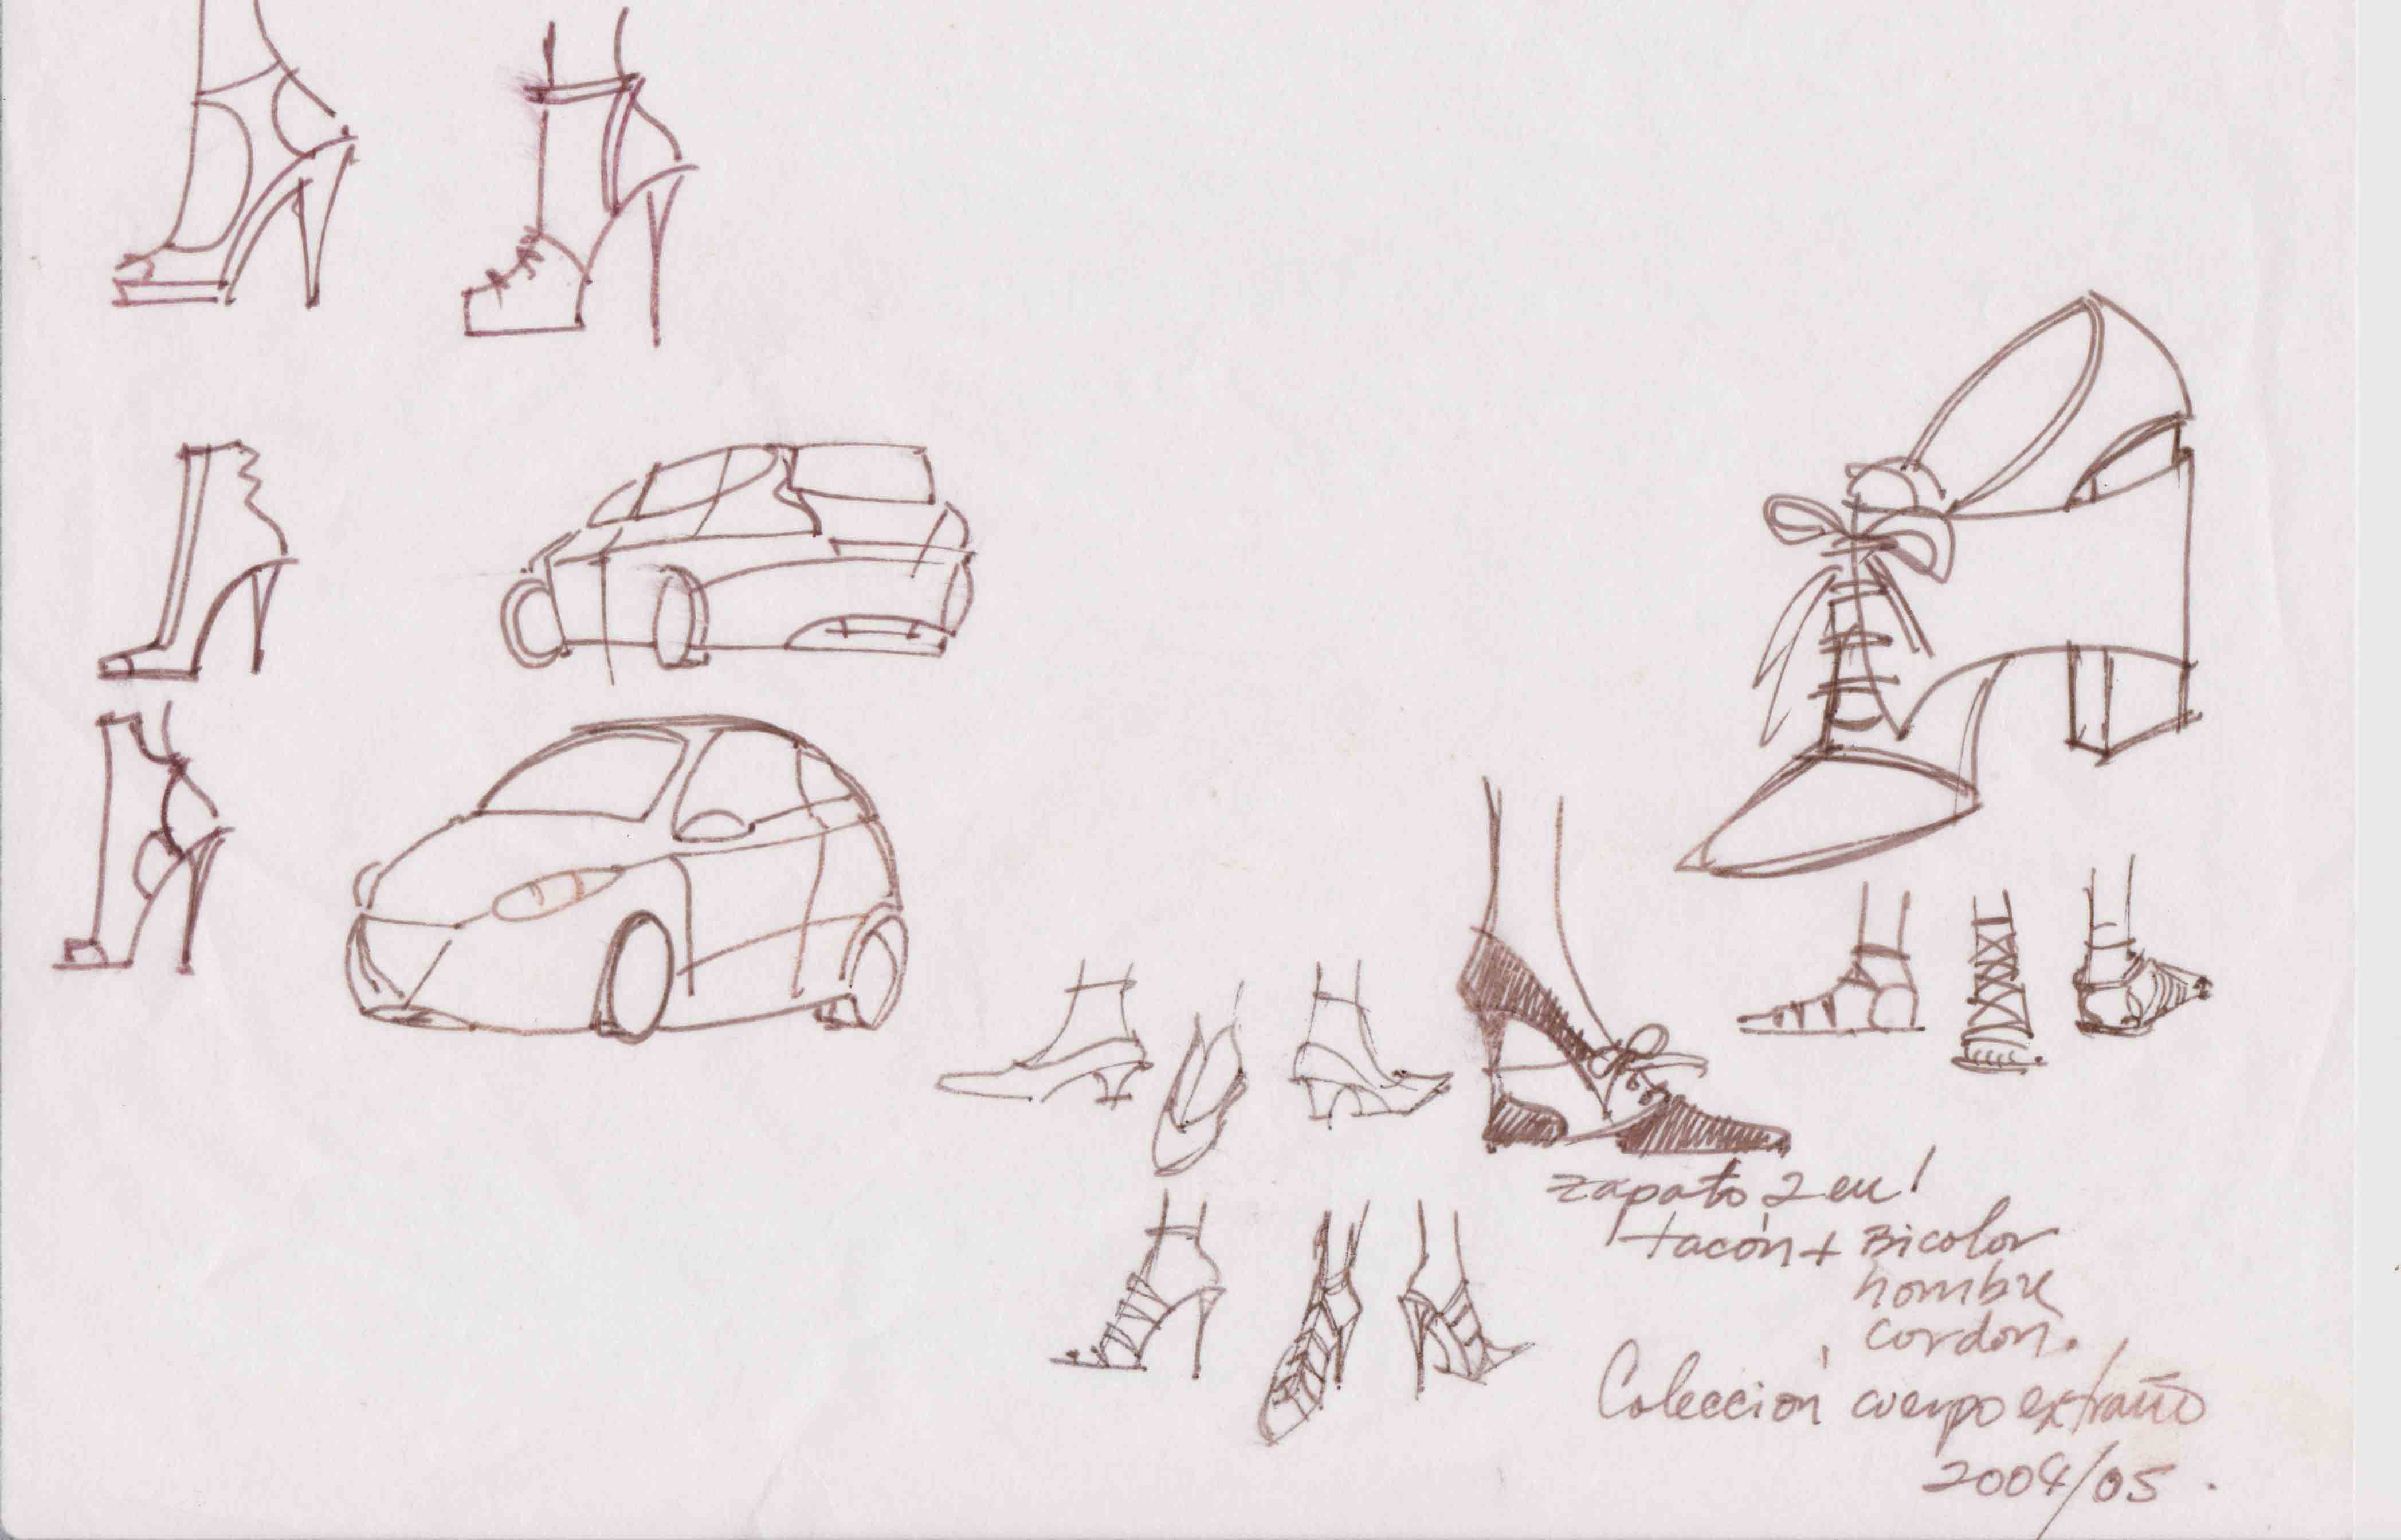 zapato 2 en 1
tacón + Bicolor
hombre
cordon.
Colección cuerpo extraño
2004/05.